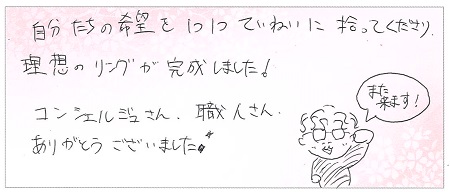 自分たちの希望を1つ1つていねいに拾ってくださり、
理想のリングが完成しました!
コンシェルジュさん、職人さん、
ありがとうございました!
また
来ます!